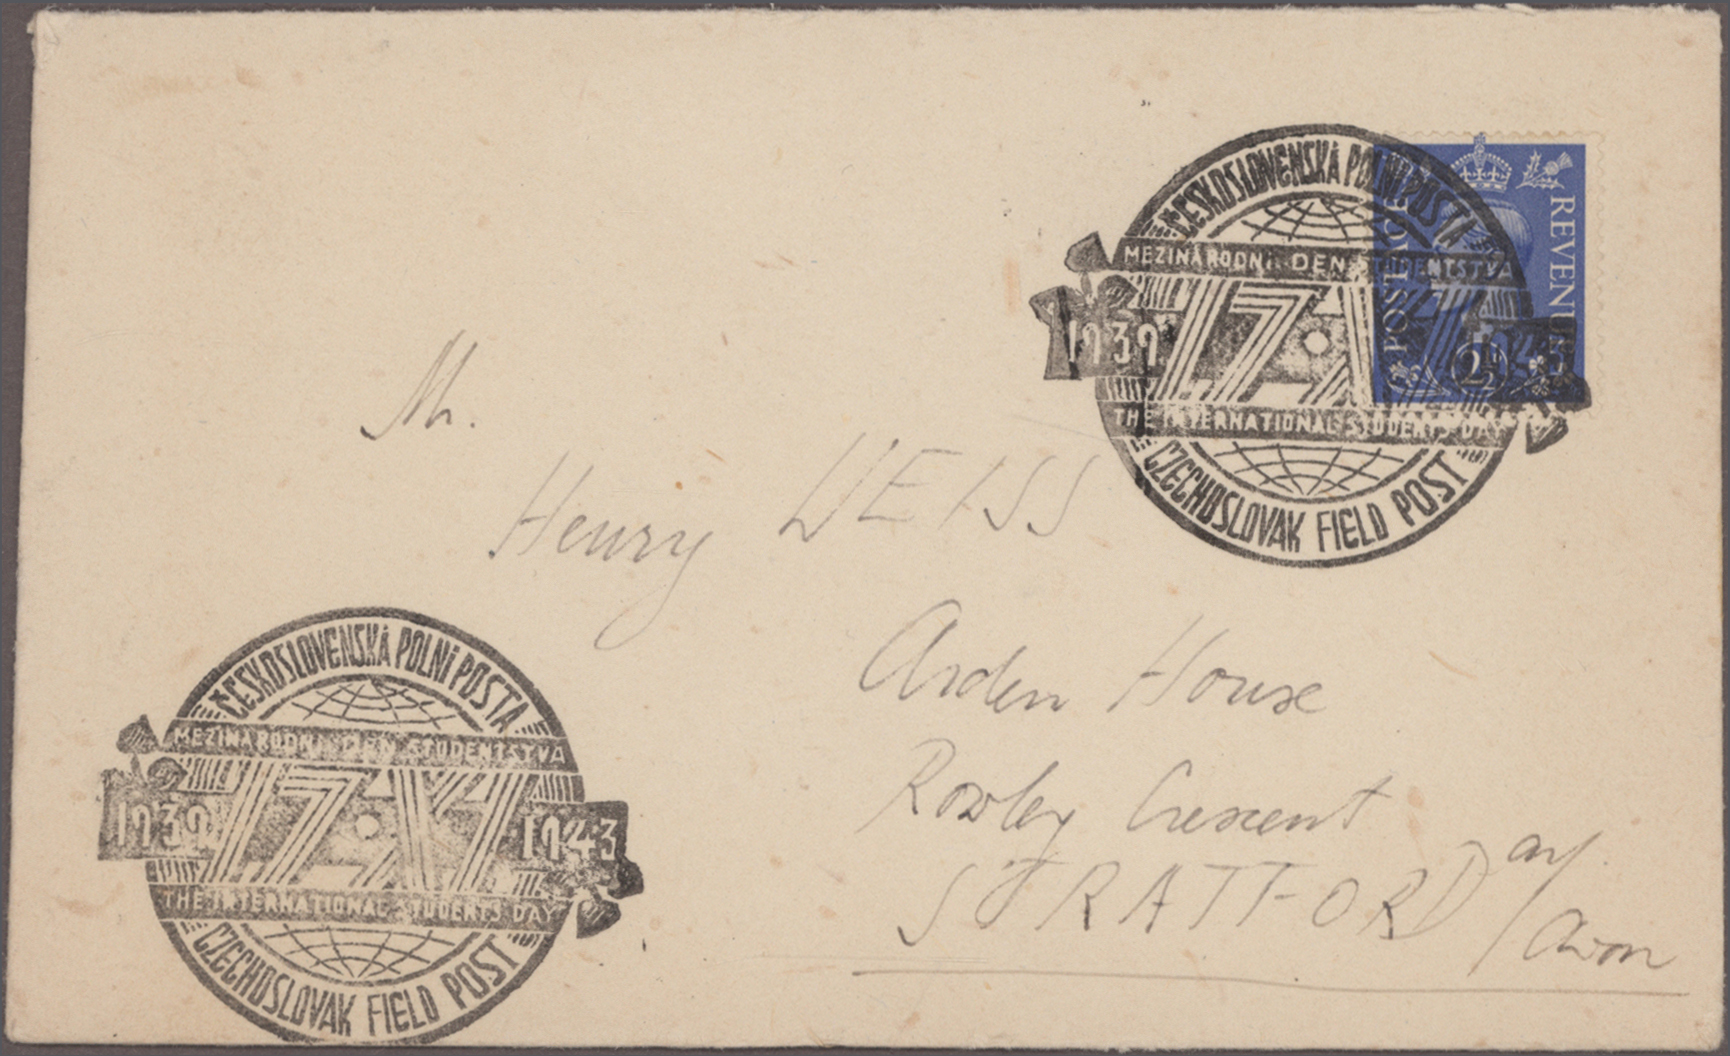 ČESKOSLOVENSKÁ POLNÍ POSTA
MEZINÁRODNÍ DEN STUDENTSTVA
1939 17·XI 1943
THE INTERNATIONAL STUDENTS DAY
CZECHOSLOVAK FIELD POST
POSTAGE
REVENUE
2½
Mr.
Henry WEISS
Arden House
Rowley Crescent
STRATFORD
Avon
ČESKOSLOVENSKÁ POLNÍ POSTA
MEZINÁRODNÍ DEN STUDENTSTVA
1939 17·XI 1943
THE INTERNATIONAL STUDENTS DAY
CZECHOSLOVAK FIELD POST